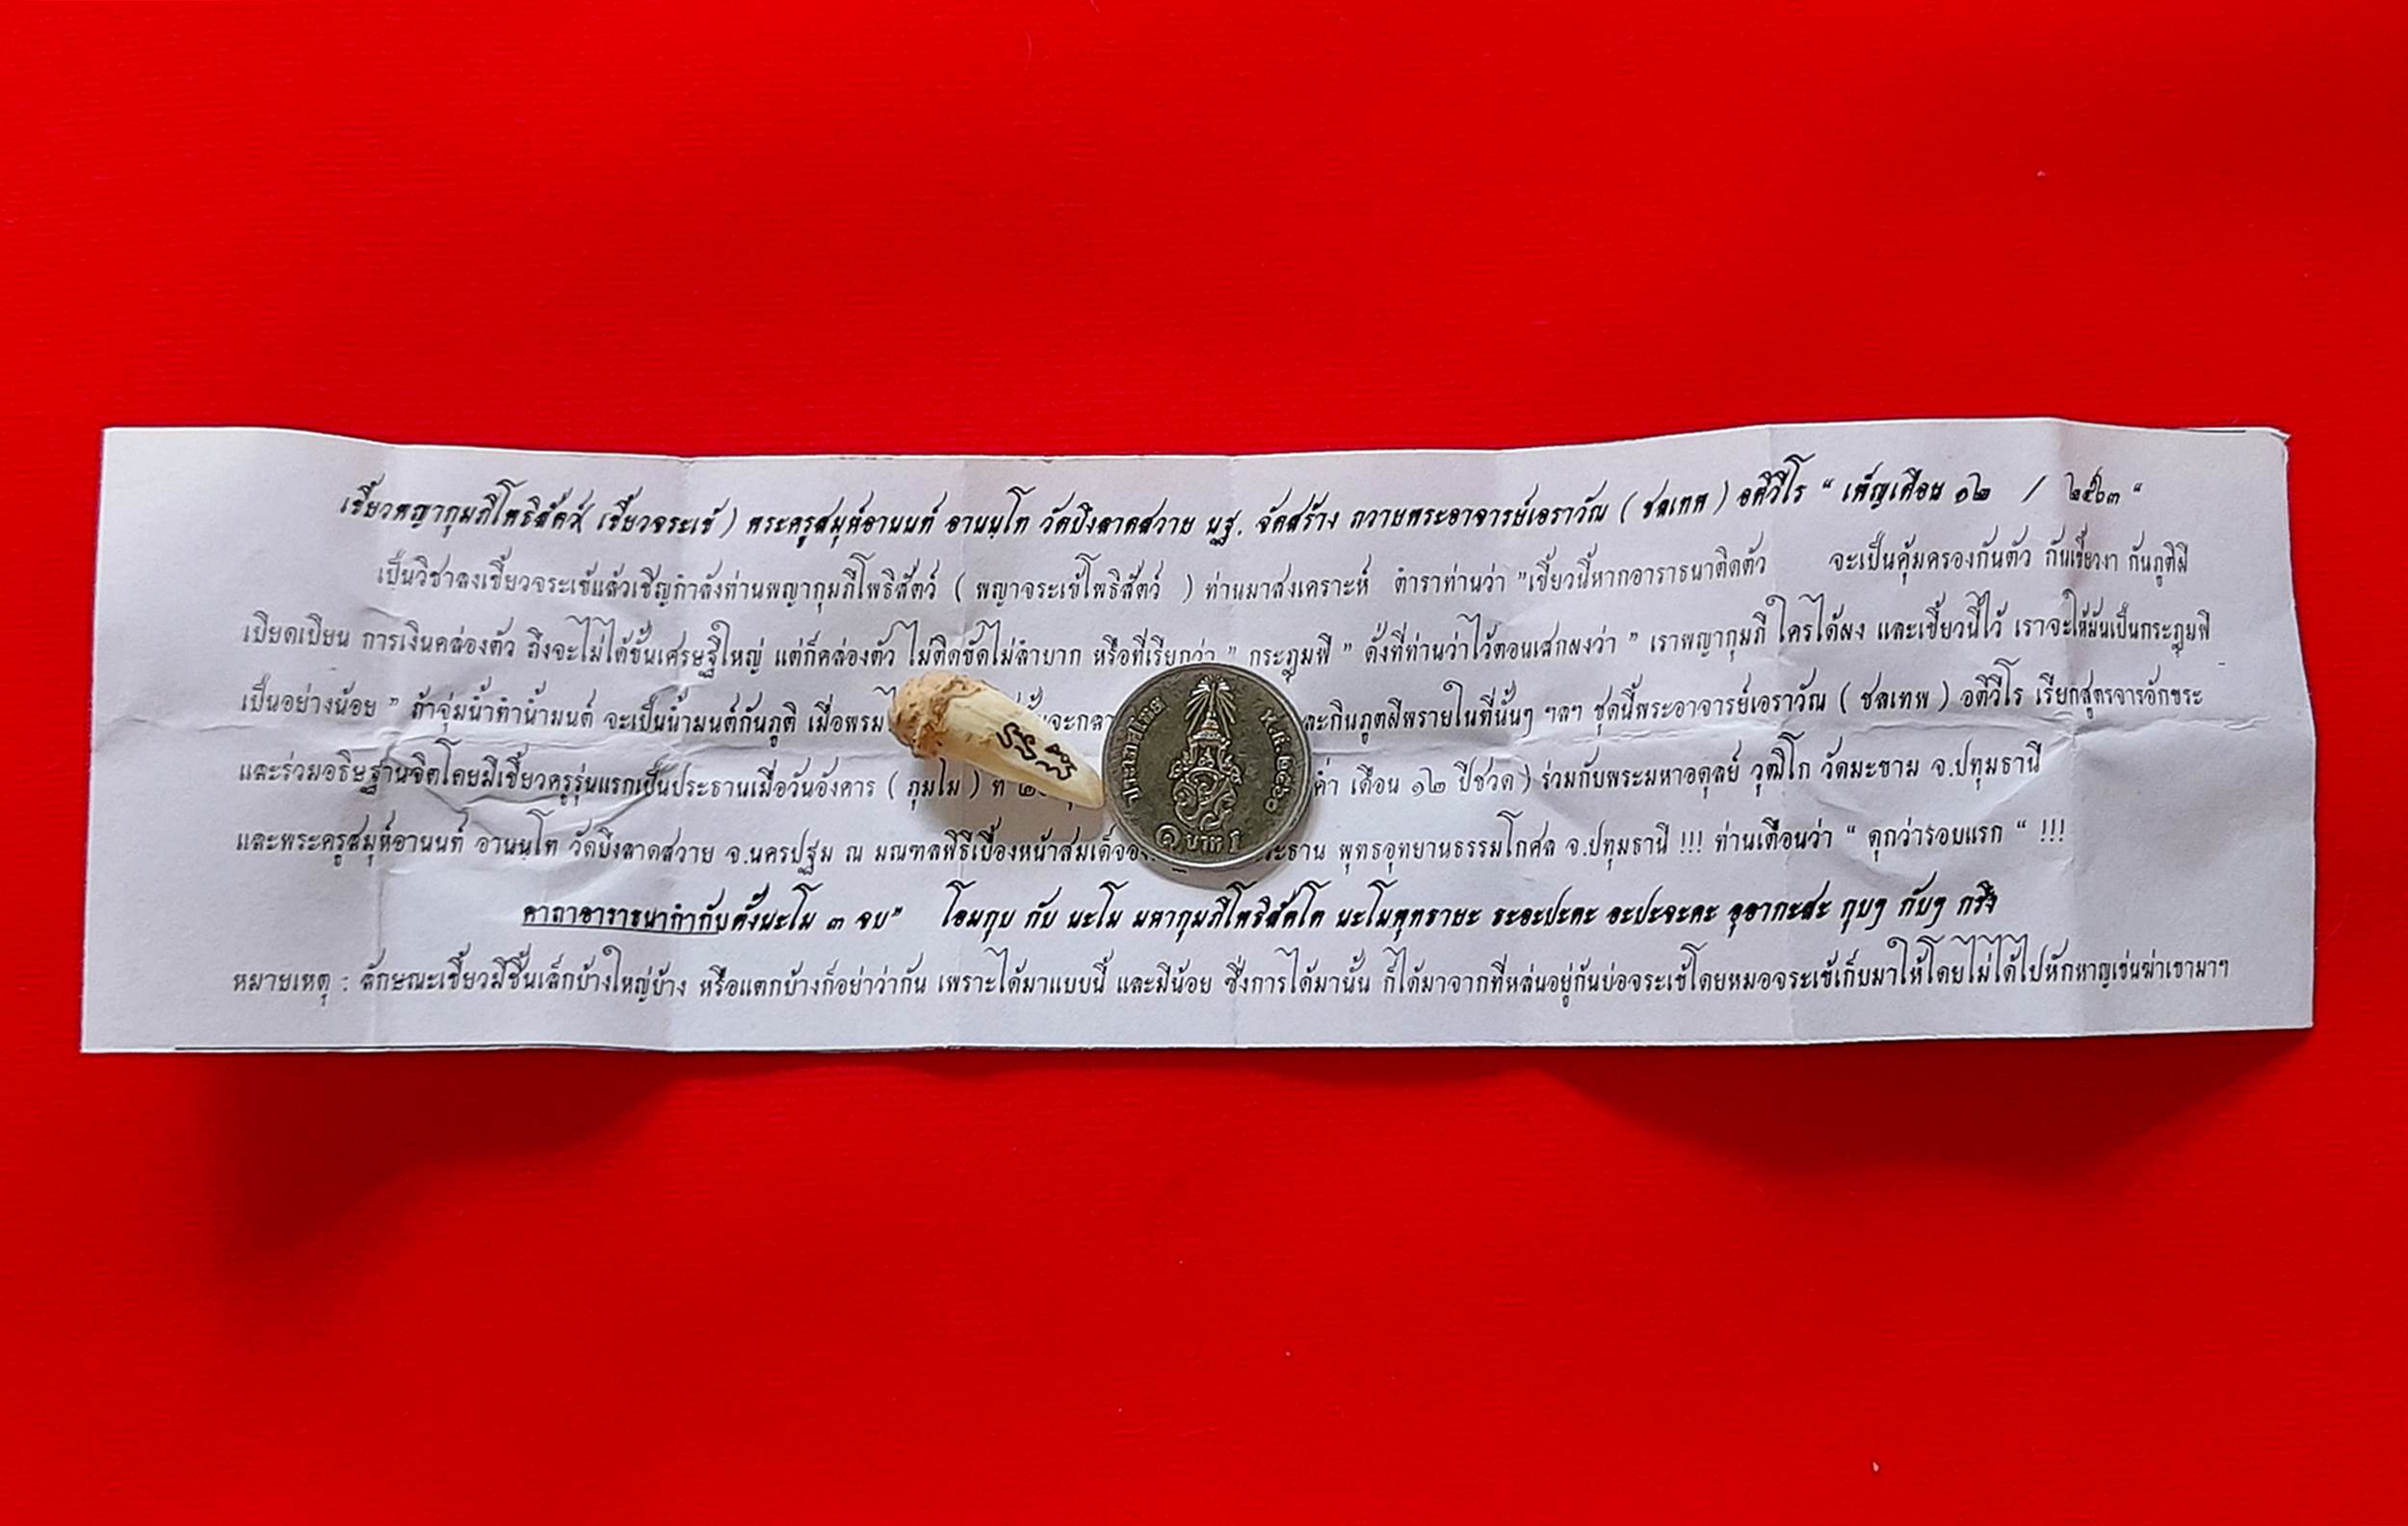 เขี้ยวพญากุมภีโพธิสัตว์( เขี้ยวจระเข้ ) พระครูสมุห์อานนท์ อานนฺโท วัดบึงลาดสวาย นฐ. จัดสร้าง ถวายพระอาจารย์เอราวัณ ( ชลเทพ ) อติวีโร “ เพ็ญเดือน ๑๒ / ๒๕๖๓ “
เป็นวิชาลงเขี้ยวจระเข้แล้วเชิญกำลังท่านพญากุมภีโพธิสัตว์ ( พญาจระเข้โพธิสัตว์ ) ท่านมาสงเคราะห์ ตำราท่านว่า ”เขี้ยวนี้หากอาราธนาติดตัว จะเป็นคุ้มครองกันตัว กันเขี้ยวงา กันภูติผี
เบียดเบียน การเงินคล่องตัว ถึงจะไม่ได้ขั้นเศรษฐีใหญ่ แต่ก็คล่องตัว ไม่ติดขัดไม่ลำบาก หรือที่เรียกว่า ” กระฎุมพี ” ดั่งที่ท่านว่าไว้ตอนเสกผงว่า ” เราพญากุมภี ใครได้ผง และเขี้ยวนี้ไว้ เราจะให้มันเป็นกระฎุมพี
เป็นอย่างน้อย ” ถ้าจุ่มน้ำทำน้ำมนต์ จะเป็นน้ำมนต์กันภูติ เมื่อพรม ละกินภูตผีพรายในที่นั้นๆ ฯลฯ ชุดนี้พระอาจารย์เอราวัณ ( ชลเทพ ) อติวีโร เรียกสูตรจารอักขระ
และร่วมอธิษฐานจิตโดยมีเขี้ยวครูรุ่นแรกเป็นประธานเมื่อวันอังคาร ( ภุมโม ) ที่ ค่ำ เดือน ๑๒ ปีชวด ) ร่วมกับพระมหาอดุลย์ วุฒิโก วัดมะขาม จ.ปทุมธานี
และพระครูสมุห์อานนท์ อานนฺโท วัดบึงลาดสวาย จ.นครปฐม ณ มณฑลพิธีเบื้องหน้าสมเด็จอง ระธาน พุทธอุทยานธรรมโกศล จ.ปทุมธานี !!! ท่านเตือนว่า “ ดุกว่ารอบแรก “ !!!
คาถาอาราธนากำกับตั้งนะโม ๓ จบ” โอมกุบ กับ นะโม มหากุมภีโพธิสัตโต นะโมพุทธายะ ธะอะปะตะ อะปะจะตะ อุอากะสะ กุบๆ กับๆ กริง
หมายเหตุ : ลักษณะเขี้ยวมีชิ้นเล็กบ้างใหญ่บ้าง หรือแตกบ้างก็อย่าว่ากัน เพราะได้มาแบบนี้ และมีน้อย ซึ่งการได้มานั้น ก็ได้มาจากที่หล่นอยู่ก้นบ่อจระเข้โดยหมอจระเข้เก็บมาให้โดยไม่ได้ไปหักหาญเข่นฆ่าเขามาฯ
ประเทศไทย พ.ศ. ๒๕๖๐
๑ บาท 1